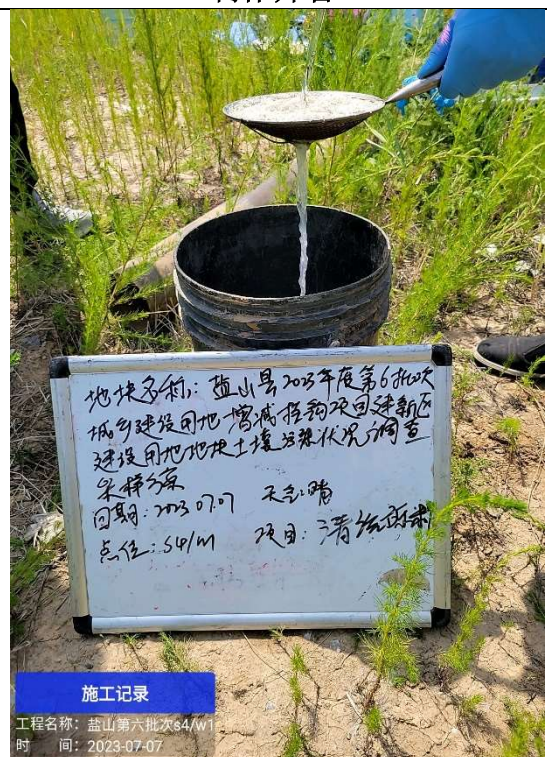 地块名称：盐山县2023年度第6批次
城乡建设用地增减挂钩项目建新区
建设用地地块土壤污染状况调查
采样方案
日期：2023.07.07 天气：晴
点位：S4/W1 项目：清洗
施工记录
工程名称：盐山第六批次s4/w1
时 间：2023-07-07